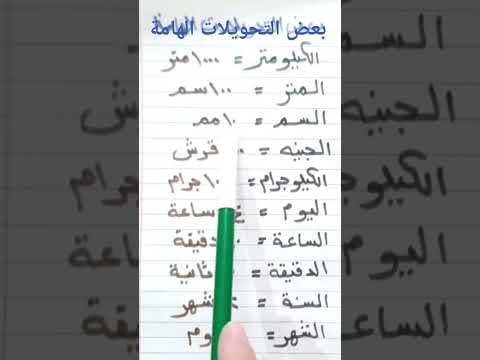 بعض التحويلات الهامة
الكيلومتر = ١٠٠٠ متر
المتر = ١٠٠ سم
السم = ١٠ مم
الجنيه = قرش
الكيلوجرام = جرام
اليوم = ساعة
الساعة = دقيقة
الدقيقة = ثانية
السنة = شهر
الشهر =